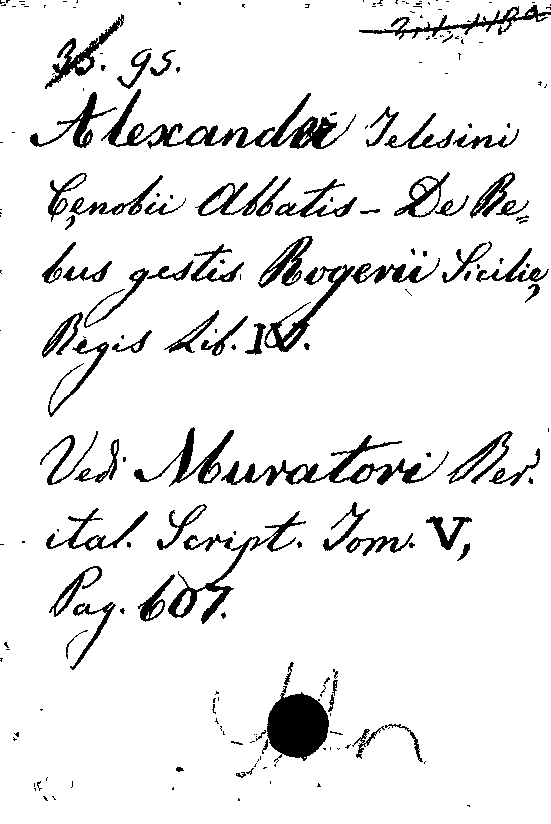 95.
Alexander Telesini
Cęnobii Abbatis - De Re=
bus gestis Rogerii Sicilię
Regis Lib. IV.
Vedi Muratori Rer.
ital. Script. Tom. V,
Pag. 607.